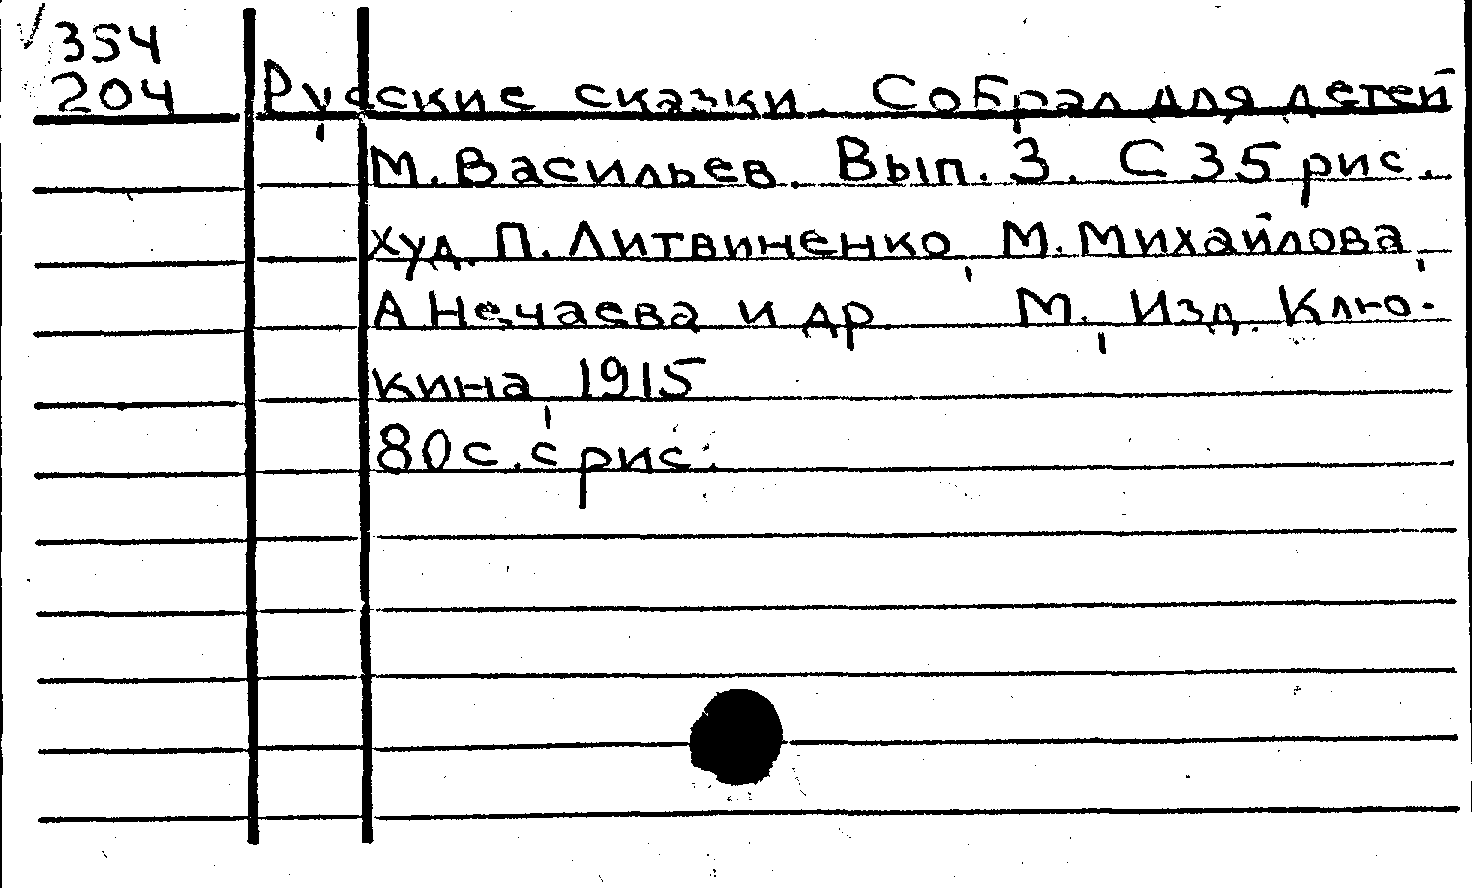 354
204
Русские сказки. Собрал для детей
М. Васильев. Вып. 3. С 35 рис.
худ. П. Литвиненко, М. Михайлова,
А Нечаева и др. М., Изд. Клю-
кина, 1915
80 с. с рис.